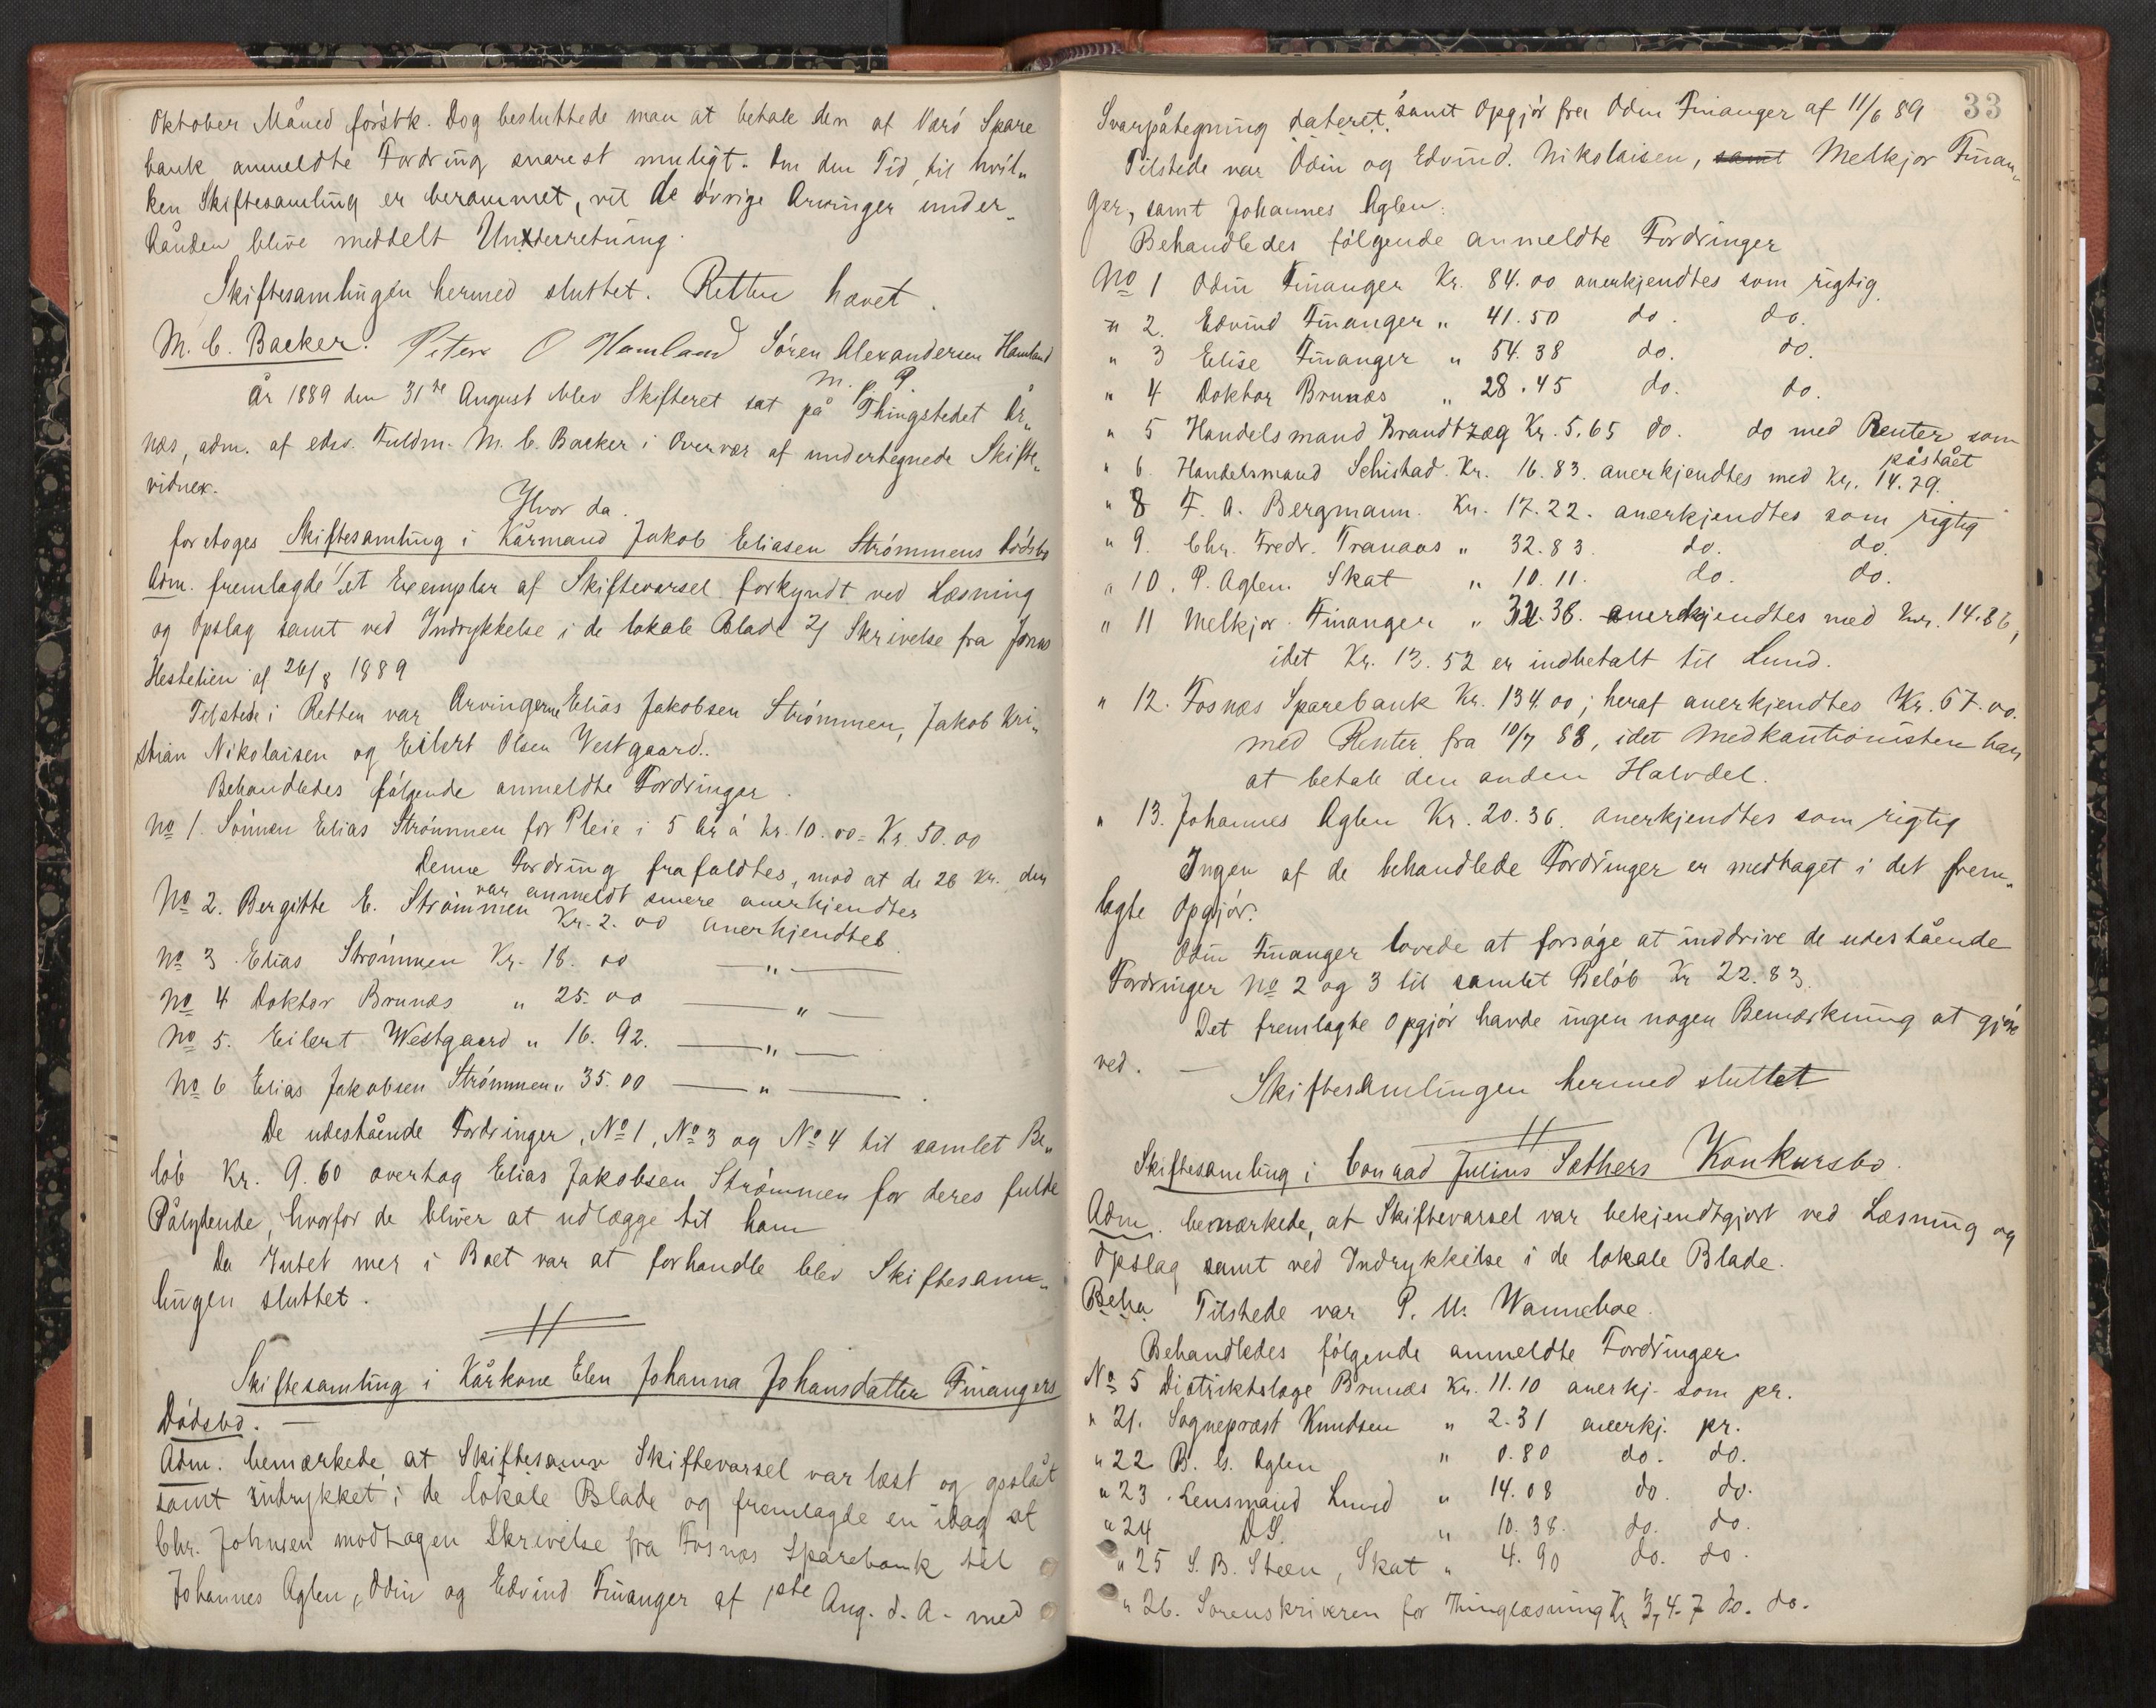 Oktober Måned førstk. Dog besluttede man at betale den af Værø Spare
bank anmeldte Fordring snarest muligt. Om den Tid, til hvil„
ken Skiftesamling er berammet, vil de øvrige Arvinger under„
hånden blive meddelt Underretning.
Skiftesamlingen hermed sluttet. Retten hævet.
M. C. Backer. Peter O Hamland Søren Alexandersen Hamland
m. p. P.
År 1889 den 31te August blev Skifteret sat på Thingstedet År„
næs, adm. af edsv. Fuldm. M. C. Backer i Overvær af undertegnede Skifte„
vidner.
Hvor da
foretoges Skiftesamling i Kårmand Jakob Eliasen Strømmens Dødsbo
Adm. fremlagde 1/ et Exemplar af Skiftevarsel forkyndt ved Læsning
og Opslag samt ved Indrykkelse i de lokale Blade 2/ Skrivelse fra Jonas
Hestelien af 26/8 1889
Tilstede i Retten var Arvingerne Elias Jakobsen Strømmen, Jakob Kri„
stian Nikolaisen og Eilert Olsen Vestgaard.
Behandledes følgende anmeldte Fordringer.
No 1. Sønnen Elias Strømmen for Pleie i 5 år à kr. 10.00 = Kr. 50.00
Denne Fordring frafaldtes, mod at de 26 Kr. der
var anmeldt senere anerkjendtes
No 2. Bergitte E. Strømmen Kr. 2.00 anerkjendtes.
No 3 Elias Strømmen Kr. 18.00 — „ —
No 4 Doktor Brunæs „ 25.00 — „ —
No 5. Eilert Westgaard „ 16.92. — „ —
No 6 Elias Jakobsen Strømmen „ 35.00 — „ — .
De udestående Fordringer, No 1, No 3 og No 4 til samlet Be„
løb Kr. 9.60 overtog Elias Jakobsen Strømmen for deres fulde
Pålydende, hvorfor de bliver at udlægge til ham
Da Intet mer i Boet var at forhandle blev Skiftesam„
lingen sluttet.
Skiftesamling i Kårkone Elen Johanna Johansdatter Finangers
Dødsbo. —
Adm. bemærkede at Skiftesam Skiftevarsel var læst og opslåt
samt indrykket i de lokale Blade og fremlagde en idag af
Chr. Johnsen modtagen Skrivelse fra Fosnæs Sparebank til
Johannes Aglen, Odin og Edvind Finanger af 1ste Aug. d. A. med
33
Svarpåtegning dateret. samt Opgjør fra Odin Finanger af 11/6 89
Tilstede var Odin og Edvind. Nikolaisen, samt Melkjor Finan„
ger, samt Johannes Aglen.
Behandledes følgende anmeldte Fordringer
No 1 Odin Finanger Kr. 84.00 anerkjendtes som rigtig.
„ 2. Edvind Finanger „ 41.50 do. do.
„ 3 Elise Finanger „ 54.38 do. do.
„ 4 Doktor Brunæs „ 28.45 do. do.
„ 5 Handelsmand Brandtzæg Kr. 5.65 do. do med Renter som
påstået
„ 6. Handelsmand Schistad Kr. 16.83. anerkjendtes med Kr. 14.79.
„ 8 F. A. Bergmann. Kr. 17.22. anerkjendtes som rigtig
„ 9. Chr. Fredr. Tranaas „ 32.83. do. do.
„ 10. P. Aglen. Skat „ 10.11. do. do.
„ 11 Melkjor Finanger „ 32.38. anerkjendtes med Kr. 14.86,
idet Kr. 13.52 er indbetalt til Lund.
„ 12. Fosnæs Sparebank Kr. 134.00; heraf anerkjendtes Kr. 67.00.
med Renter fra 10/7 88, idet Medkautionisten har
at betale den anden Halvdel.
„ 13. Johannes Aglen Kr. 20.36. anerkjendtes som rigtig
Ingen af de behandlede Fordringer er medtaget i det frem„
lagte Opgjør.
Odin Finanger lovede at forsøge at inddrive de udestående
Fordringer No 2 og 3 til samlet Beløb Kr 22.83.
Det fremlagte Opgjør havde ingen nogen Bemærkning at gjøre
ved. —
Skiftesamlingen hermed sluttet
Skiftesamling i Conrad Julius Sæthers Konkursbo.
Adm. bemærkede, at Skiftevarsel var bekjendtgjort ved Læsning og
Opslag samt ved Indrykkelse i de lokale Blade.
Beha Tilstede var P. M. Wannebo.
Behandledes følgende anmeldte Fordringer
No 5 Distriktslæge Brunæs Kr. 11.10 anerkj. som pr.
„ 21. Sognepræst Knudsen „ 2.31 anerkj. pr.
„ 22 B. G. Aglen „ 0.80 do. do.
„ 23. Lensmand Lund „ 14.08 do. do.
„ 24 DS. „ 10.38. do. do.
„ 25 S. B. Steen, Skat „ 4.90 do. do.
„ 26. Sorenskriveren for Thinglæsning Kr 3,4.7 do. do.